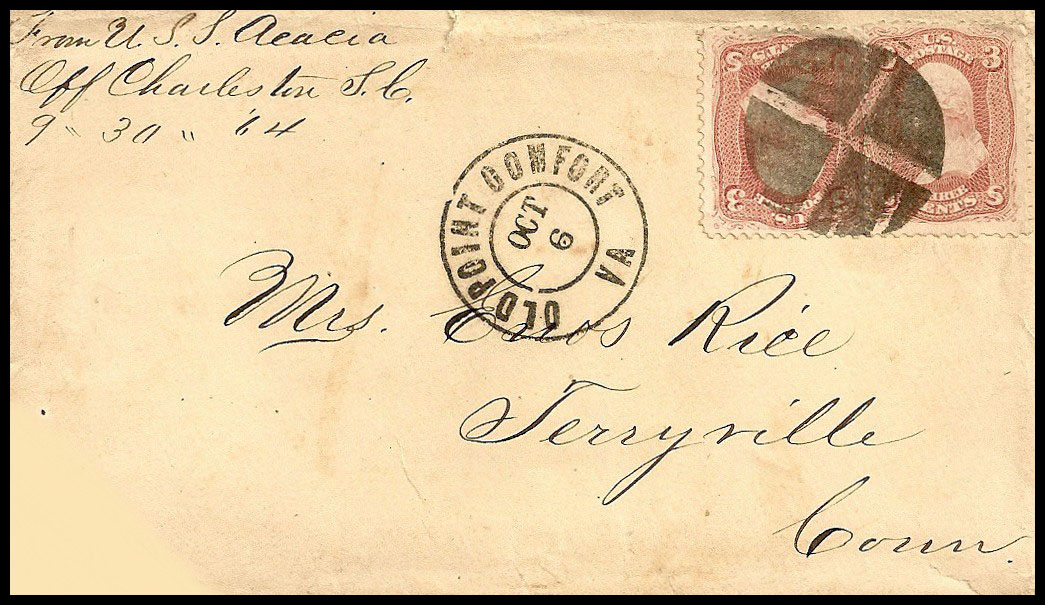 From U. S. S. Acacia
Off Charleston S. C.
9 " 30 " '64
U.S. POSTAGE
3
S
3 CENTS
OLD POINT COMFORT VA
OCT
6
Mrs. Enos Rice
Terryville
Conn.